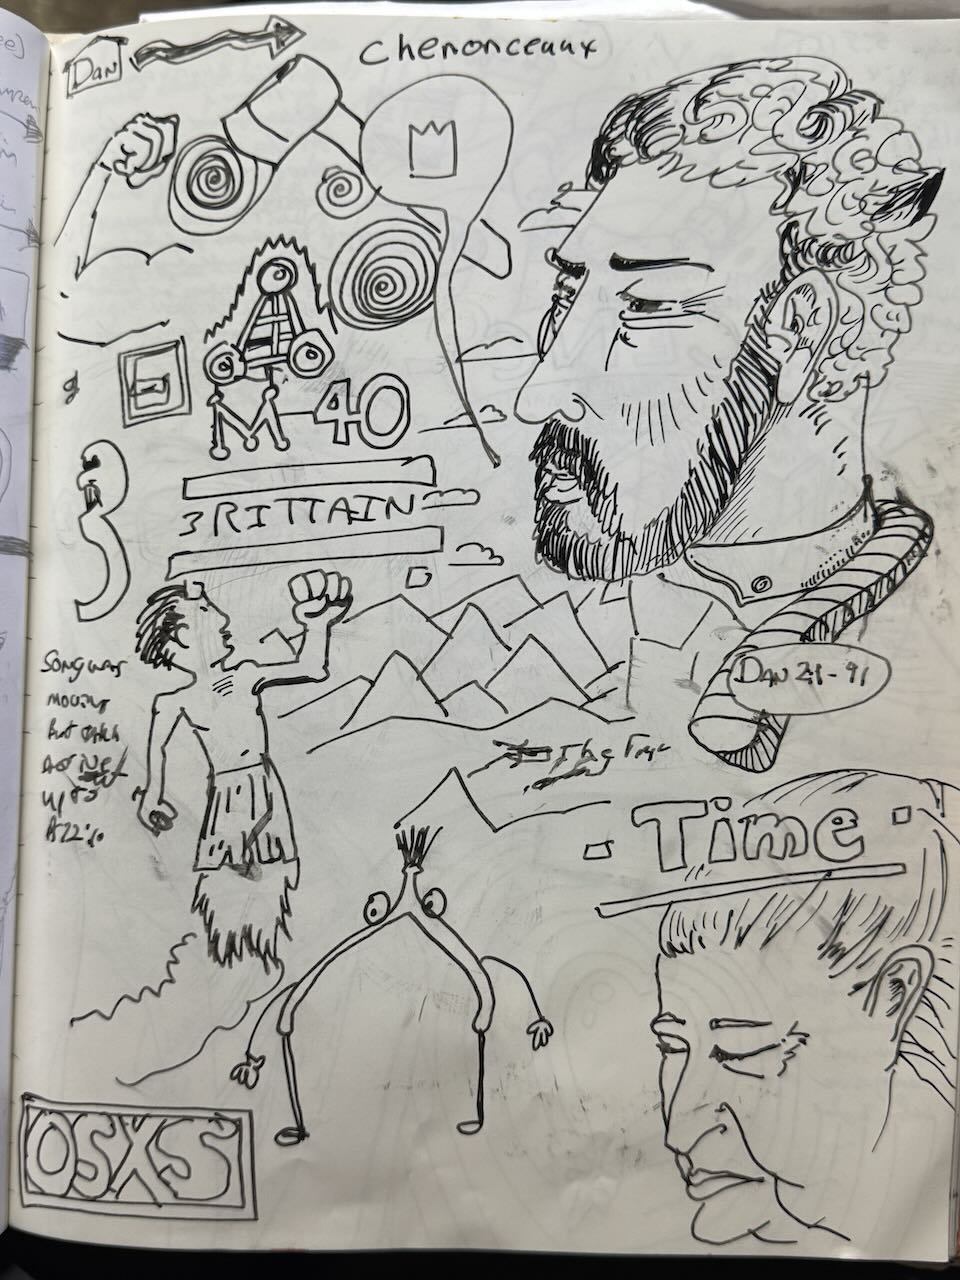 Dan
Chenonceaux
g
M-40
3RITTAIN
Song was
moving
but
not
up to
DAN 2:1-91
The
Time
OSXS